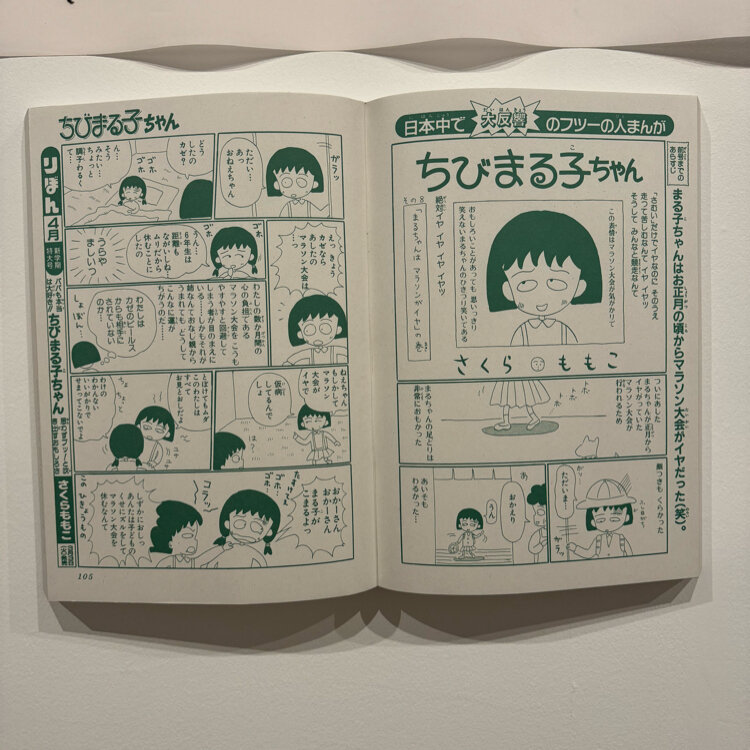 日本中で大反響のフツーの人まんが
ちびまる子ちゃん
前号までの
あらすじ
まる子ちゃんはお正月の頃からマラソン大会がイヤだった(笑)。
「さむい」だけでイヤなのに そのうえ
走って苦しむなんて イヤ イヤッ
そうして みんなと競走なんて
絶対イヤ イヤ イヤ イヤッ
その8
「まるちゃんは マラソンがイヤ」の巻
この表情はマラソン大会が気がかりで
おもしろいことがあっても 思いっきり
笑えないまるちゃんのひきつり笑いである
さくらももこ
ついにあした
まるちゃんが正月から
イヤがっていた
マラソン大会が
行われるため
まるちゃんの足どりは
非常におもかった
トホ
トホ
顔つきも くらかった
ただいま…
ガラッ
おかえり
うん
あいそも
わるかった…
ちびまる子ちゃん
ガラッ
ただい…
あっ
おねえちゃん
どう
したの
カゼ?
ゴホ
ゴホ
ん…
そう
みたい…
ちょっと
調子わるく
て…
えっ きょう
カゼなら
あしたの
マラソン大会は
…っ
ゴホ
ゴホ
うん…
6年生は
距離も
ながいしね…
ムリだから
休むことに
したの
うらや
ましいっ
わたしの数か月間の
心の負担である
マラソン大会を こうも
やすやすと回避して
いる者が目のまえに
いる… しかもそれが
姉なんて おなじ親から
うまれても どうして
こんなに運が
ちがうのだ…
わたしは
カゼのビールス
からも相手に
されていない
のか…
しょぼん…
ねえちゃん
もしかして
マラソン
大会が
イヤで
仮病
してるんで
しょ
とぼけてもムダ
このわたしは
すべて
お見とおしだよ
ちょっと
わけの
わかんない
いいがかりで
せまってこないでよ
ユサ
ユサ
たすけてぇ
ゴホ
ゴホ…
おかーさん
おかーさん
まる子が
こまるよっ
コラッ
しずかにおしっ
あんたは子どもの
くせにズルをして
マラソン大会を
休むなんて
このひきょうもの
105
りぼん4月
新学期
特大号
パパも本当
は大好き!!
ちびまる子ちゃん
さくらももこ